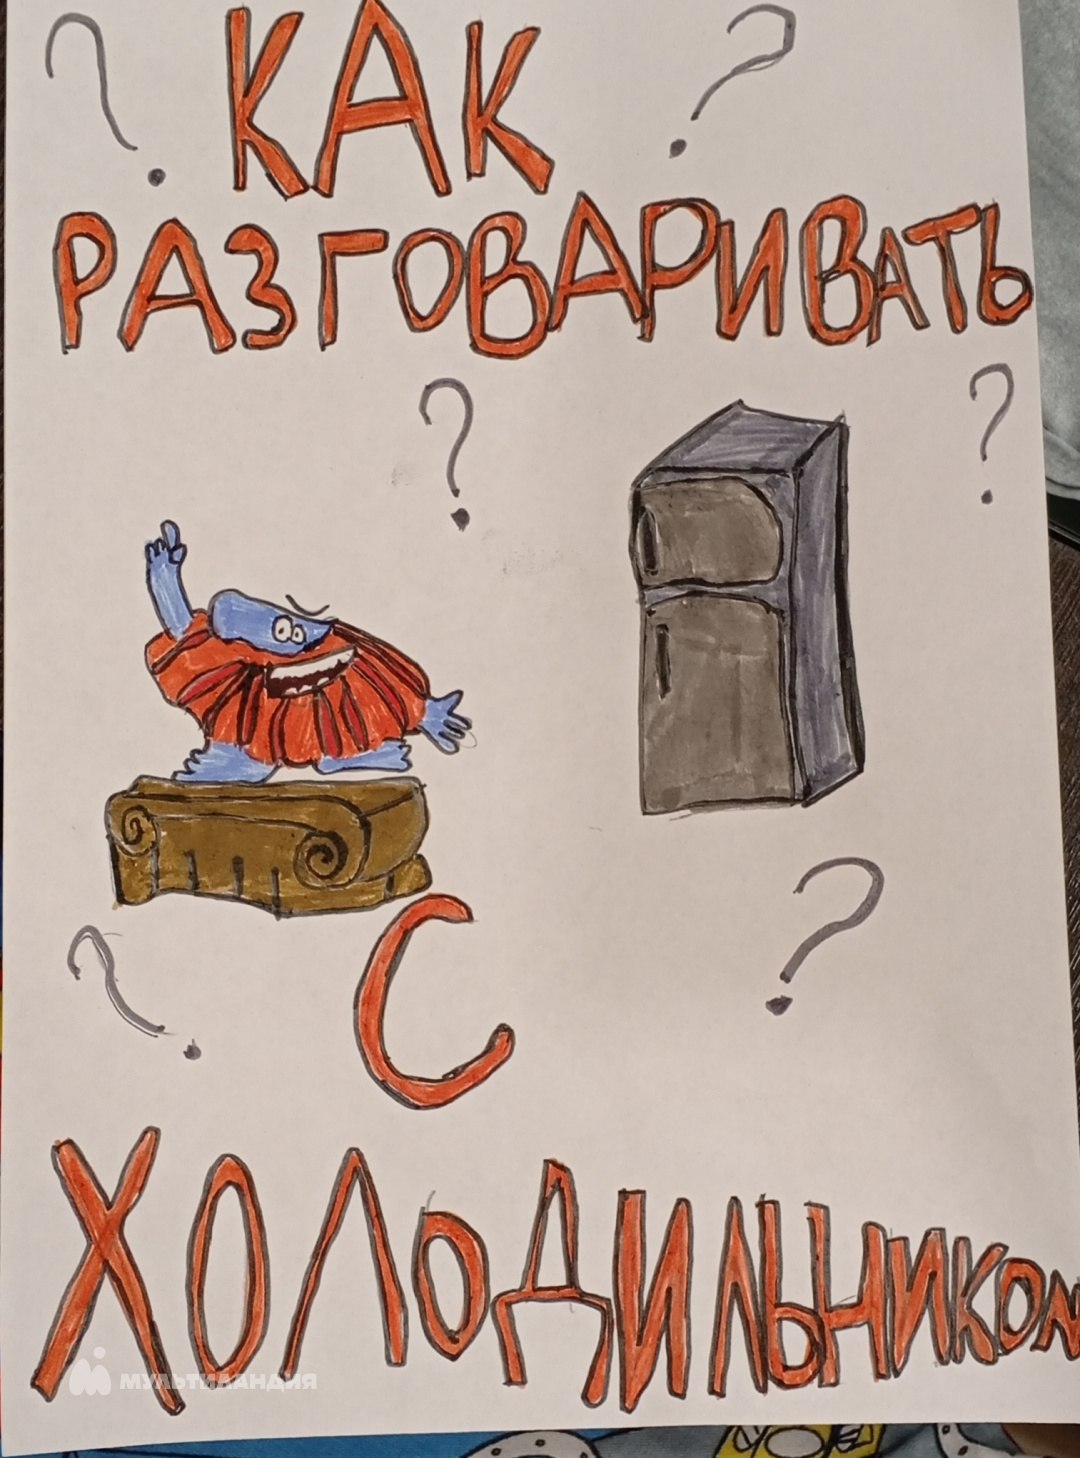 КАК
РАЗГОВАРИВАТЬ
С
ХОЛОДИЛЬНИКОМ
МУЛЬТИЛАНДИЯ